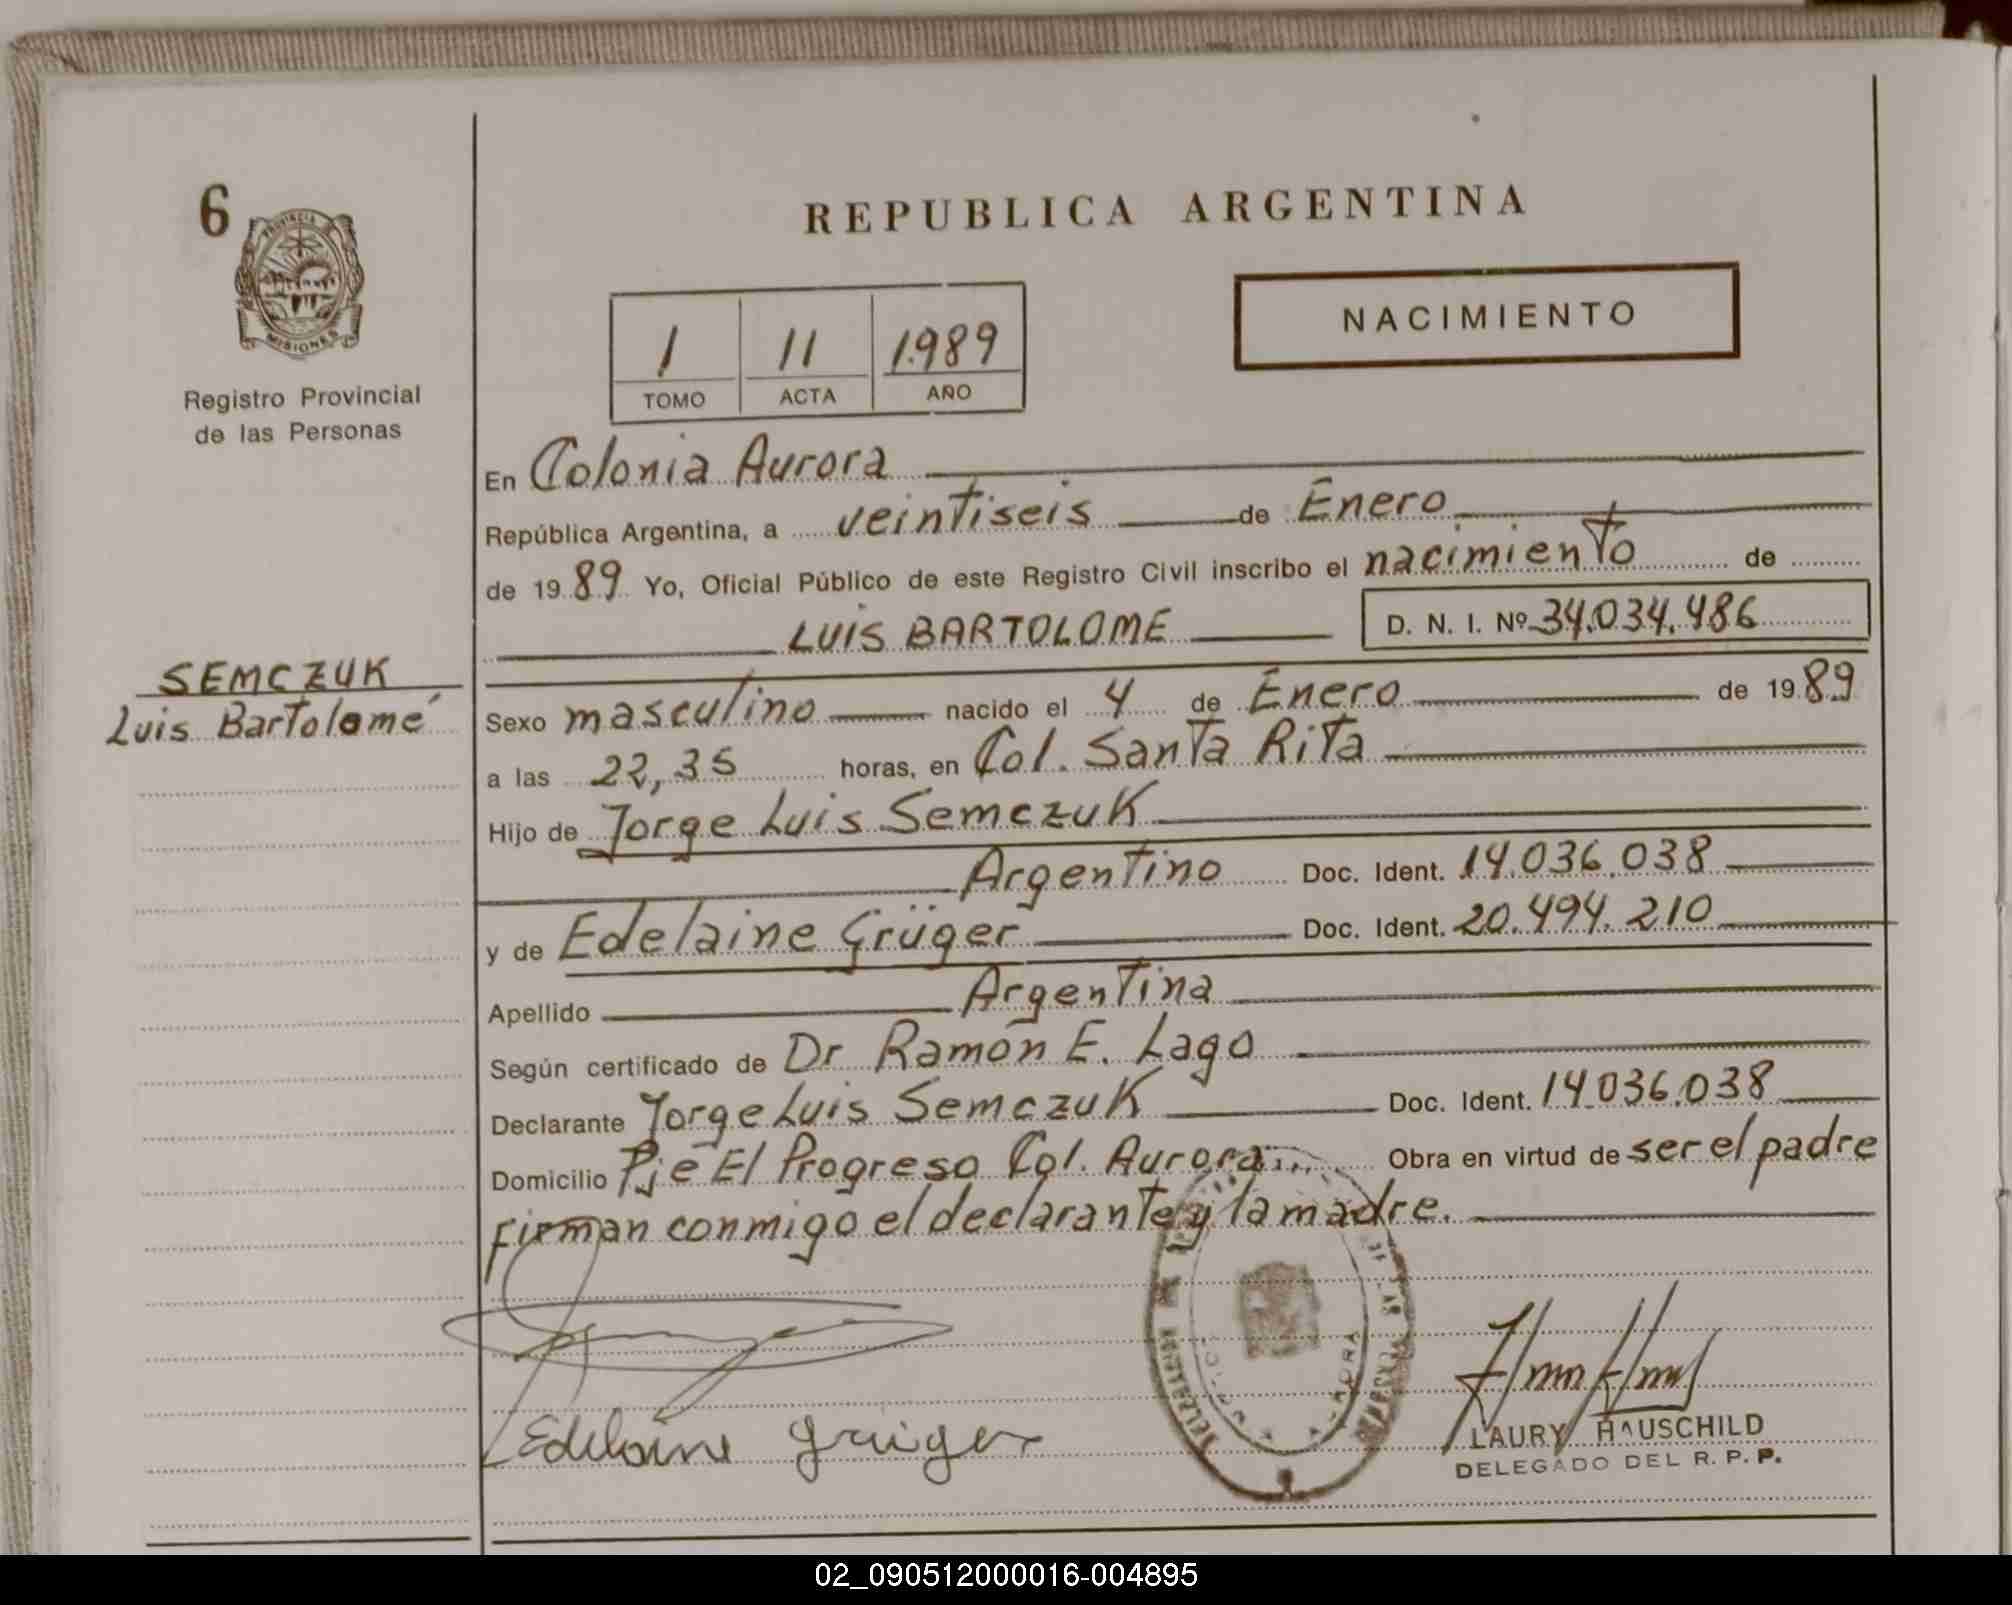 6
PROVINCIA DE
MISIONES
Registro Provincial
de las Personas
SEMCZUK
Luis Bartolomé
REPUBLICA ARGENTINA
1 11 1.989
TOMO ACTA AÑO
NACIMIENTO
En Colonia Aurora
República Argentina, a veintiseis de Enero
de 19 89 Yo, Oficial Público de este Registro Civil inscribo el nacimiento de
LUIS BARTOLOME D. N. I. Nº 34.034.486
Sexo masculino nacido el 4 de Enero de 19 89
a las 22,35 horas, en Col. Santa Rita
Hijo de Jorge Luis Semczuk
Argentino Doc. Ident. 14.036.038
y de Edelaine Grüger Doc. Ident. 20.494.210
Apellido Argentina
Según certificado de Dr Ramón E. Lago
Declarante Jorge Luis Semczuk Doc. Ident. 14.036.038
Domicilio Pje El Progreso Col. Aurora Obra en virtud de ser el padre
Firman conmigo el declarante y la madre.
Edelaine Grüger
LAURY HAUSCHILD
DELEGADO DEL R. P. P.
02_090512000016-004895